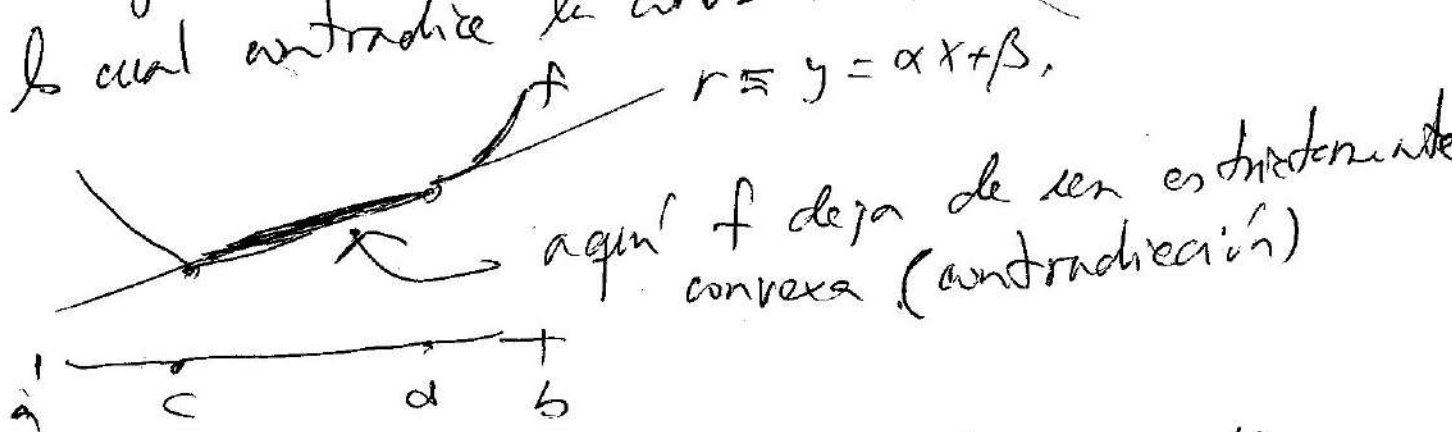 lo cual contradice la
f
r ≡ y = αx+β.
aquí f deja de ser estrictamente
convexa (contradicción)
a c d b